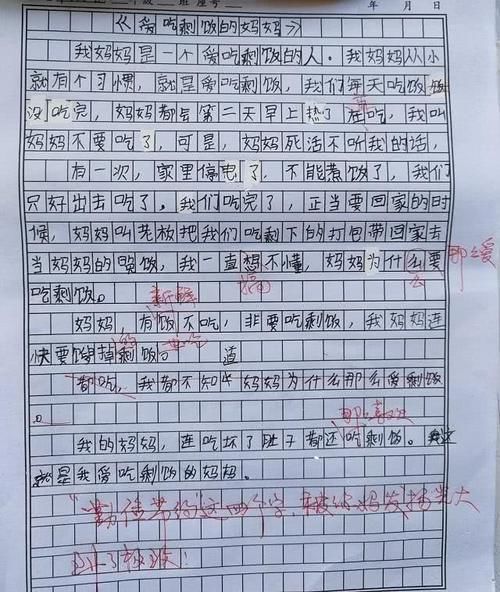 年 月 日
《爱吃剩饭的妈妈》
我妈妈是一个爱吃剩饭的人。我妈妈从小
就有个习惯,就是爱吃剩饭,我们每天吃饭
没吃完,妈妈都会第二天早上热了在吃,我叫
妈妈不要吃了,可是,妈妈死活不听我的话,
有一次,家里停电了,不能煮饭了,我们
只好出去吃了,我们吃完了,正当要回家的时
候,妈妈叫老放把我们吃剩下的打包带回家去
当妈妈的晚饭,我一直想不懂,妈妈为什么要 那么爱
吃剩饭。 新鲜
妈妈,有饭不吃,非要吃剩饭,我妈妈连
快要馊掉剩饭
都吃,我都不知道妈妈为什么那么爱剩饭
。
我的妈妈,连吃坏了肚子都还吃剩饭。我这
就是我爱吃剩饭的妈妈。
"勤俭节约"这四个字,被你妈发扬光大